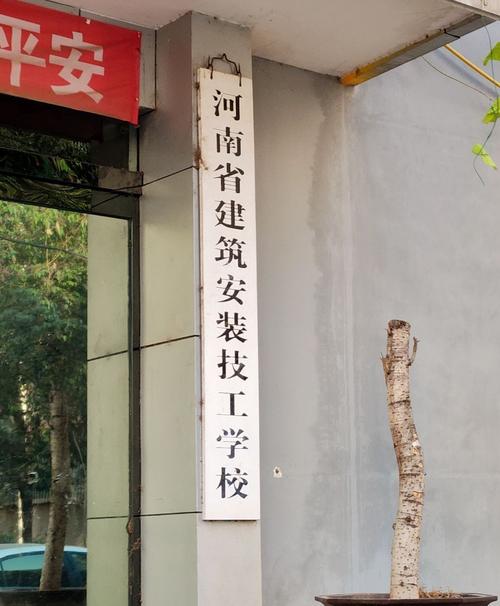 平安
河南省建筑安装技工学校